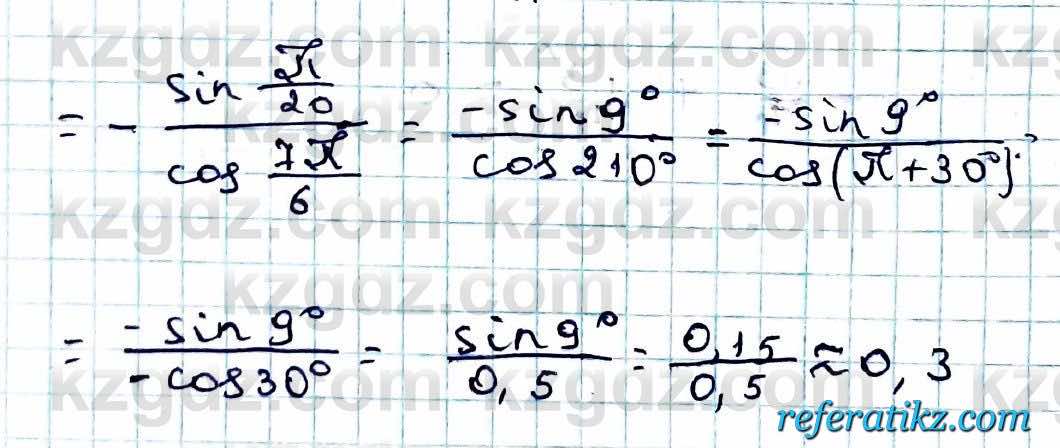 kzgdz.com kzgdz.com kzgdz.com
= - sin π/20 / cos 7π/6 = -sin 9° / cos 210° = -sin 9° / cos(π+30°)
kzgdz.com kzgdz.com kzgdz.com
kzgdz.com
= -sin 9° / -cos 30° = sin 9° / 0,5 = 0,15 / 0,5 ≈ 0,3
kzgdz.com kzgdz.com kzgdz.com
referatikz.com